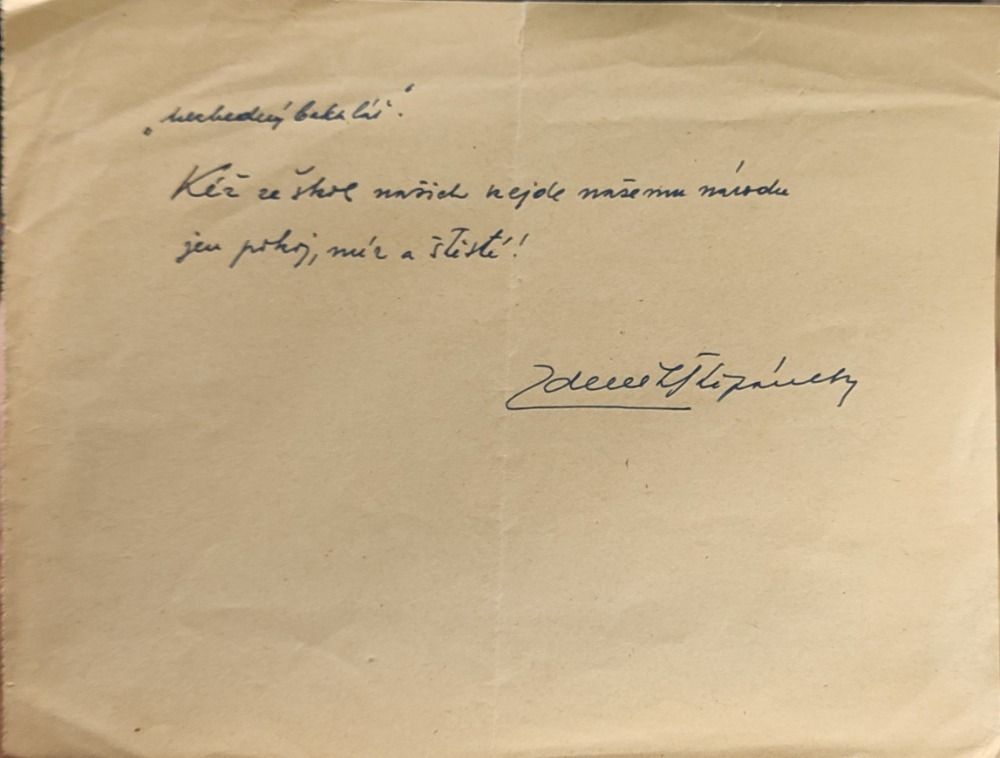 „nezbedný bakalář“.
Kéž ze škol našich vejde našemu národu
jen pokoj, mír a štěstí!
Zdeněk Štěpánek